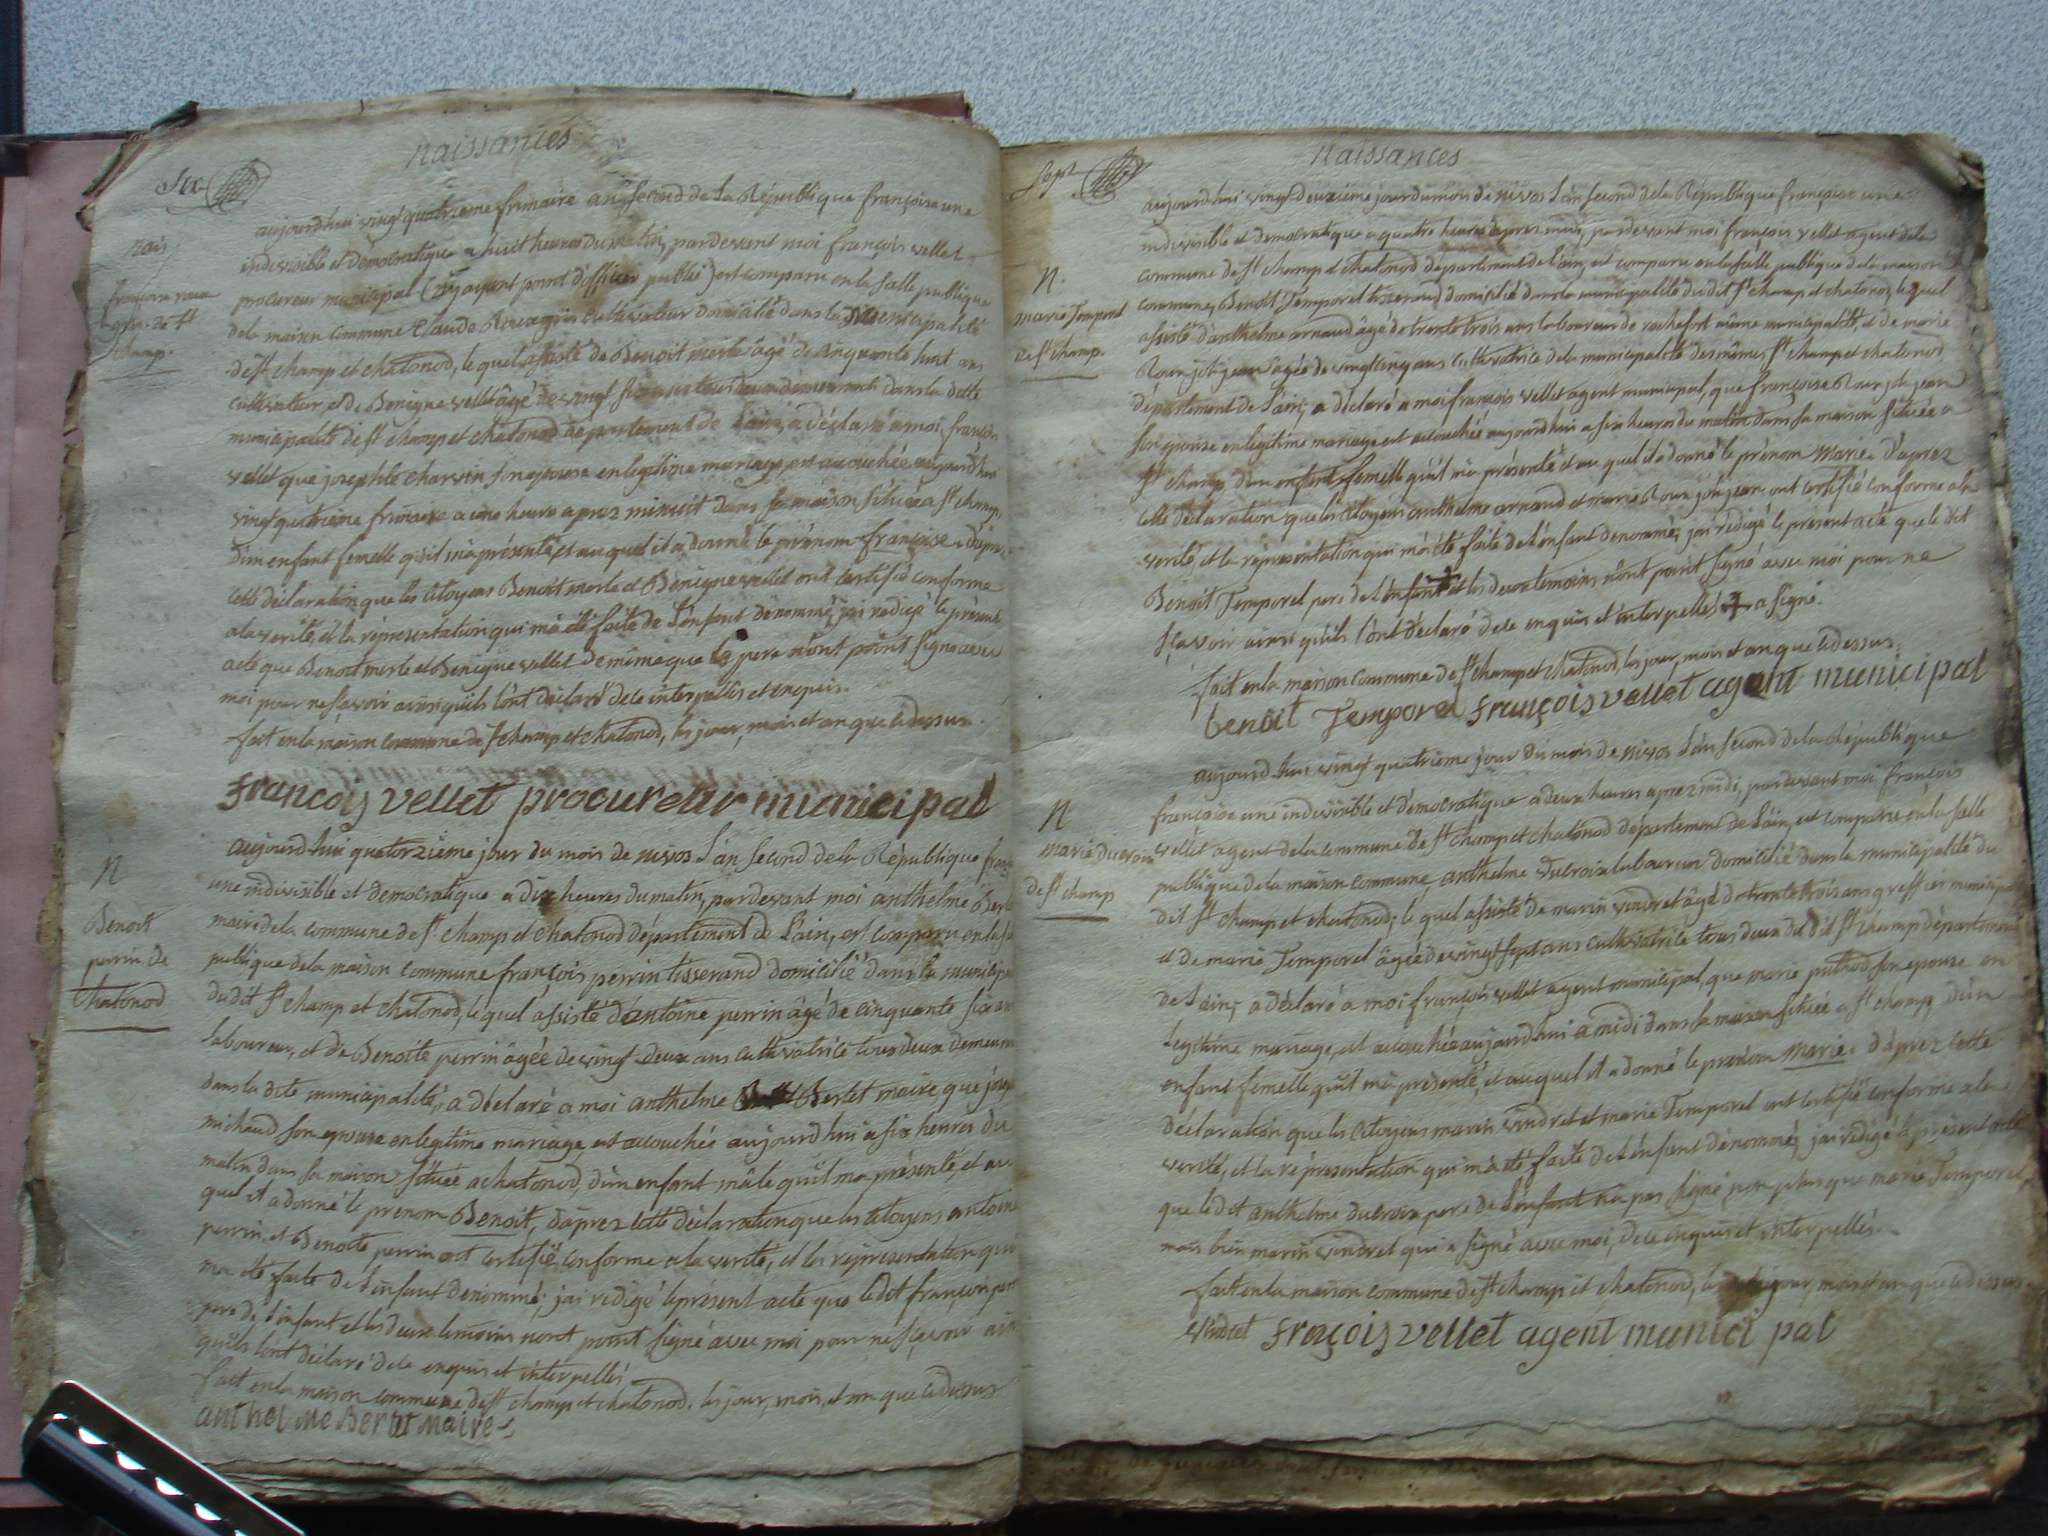 naissances
Six
nais
françoise
de St
champ.
aujourdhui vingt quatrieme frimaire an second de la République françoise une
indivisible et démocratique a huit heures du matin, pardevant moi françois vellet
procureur municipal (n'y ayant point d'officier public) est comparu en la salle publique
de la maison commune Claude cultivateur domicilié dans la municipalité
de St champ et chatonod, le quel assisté de Benoit merle âgé de cinquante huit ans
cultivateur et de Benigne vellet âgé de vingt six ans tous deux demeurants dans la dette
municipalité de St champ et chatonod département de L'ain, a déclaré a moi françois
vellet que josephte charvin son epouse en legitime mariage, est accouchée aujourd'hui
vingt quatrieme frimaire a une heure aprez minuit dans sa maison située a St champ,
d'un enfant femelle qu'il m'a présenté, et au quel il a donné le prénom françoise. d'aprez
cette déclaration que les citoyens Benoit merle et Benigne vellet ont certifié conforme
a la verité, et la répresentation qui m'a été faite de L'enfant dénommé, j'ai redigé le présent
acte que Benoit merle et Benigne vellet de même que le pere n'ont point signé avec
moi pour ne sçavoir ainsi qu'ils l'ont déclaré de ce interpellés et enquis.
fait en la maison commune de St champ et chatonod, les jour, mois et an que cedessus.
françois vellet procureur municipal
N
Benoit
perrin de
chatonod
aujourdhui quatorzieme jour du mois de nivos L'an second de la République
une indivisible et democratique a dix heures du matin, pardevant moi anthelme
maire de la commune de St champ et chatonod département de L'ain, est comparu en la
publique de la maison commune françois perrin tisserand domicilié dans la
dudit St champ et chatonod, le quel assisté d'antoine perrin âgé de cinquante six ans
laboureur, et de Benoite perrin âgée de vingt deux ans cultivatrice tous deux
dans la dite municipalité, a déclaré a moi anthelme Bertet maire que
michaud son epouse en legitime mariage est accouchée aujourd'hui a six heures du
matin dans sa maison située a chatonod, d'un enfant mâle qu'il m'a présenté, et au
quel il a donné le prenom Benoit, d'aprez cette déclaration que les citoyens antoine
perrin, et Benoite perrin ont certifié conforme a la verité, et la répresentation qui
m'a été faite de L'enfant dénommé, j'ai redigé le présent acte que ledit françois
pere de l'enfant et les deux temoins n'ont point signé avec moi pour ne sçavoir
qu'ils l'ont déclaré de ce enquis et interpellés
fait en la maison commune de St champ et chatonod, les jour, mois, et an que cedessus
anthelme Bertet Maire
naissances
Sept
N.
marie Temporel
de St champ.
aujourd'hui vingt deuxieme jour du mois de nivos L'an second de la République françoise une
indivisible et democratique a quatre heures aprez midi, pardevant moi françois vellet agent de la
commune de St champ et chatonod département de l'ain, est comparu en la salle publique de la maison
commune, Benoit Temporel tisserand domicilié dans la municipalité dudit St champ et chatonod, le quel
assisté d'anthelme arnaud âgé de trente trois ans laboureur de rochefort même municipalité, et de marie
Roux âgée de vingt cinq ans cultivatrice de la municipalité des mêmes St champ et chatonod
département de L'ain, a déclaré a moi françois vellet agent municipal, que françoise Roux
son epouse en legitime mariage est accouchée aujourd'hui a six heures du matin dans sa maison située a
St champ d'un enfant femelle qu'il m'a présenté et au quel il a donné le prénom marie. d'aprez
cette déclaration que les citoyens anthelme arnaud et marie Roux ont certifié conforme a la
verité, et la répresentation qui m'a été faite de L'enfant denommé, j'ai rédigé le présent acte que le dit
Benoit Temporel pere de L'enfant et les deux temoins n'ont point signé avec moi pour ne
sçavoir ainsi qu'ils l'ont déclaré de ce enquis et interpellés a signé.
fait en la maison commune de St champ et chatonod, les jour, mois et an que cedessus.
benoit Temporel françois vellet agent municipal
N
marie ducroix
de St champ
aujourd'hui vingt quatrieme jour du mois de nivos L'an second de la République
françoise une indivisible et démocratique a deux heures aprez midi, pardevant moi françois
vellet agent de la commune de St champ et chatonod département de L'ain, est comparu en la salle
publique de la maison commune, anthelme ducroix laboureur domicilié dans la municipalité du
dit St champ et chatonod, le quel assisté de marin vindret âgé de trente trois ans greffier municipal
et de marie Temporel âgée de vingt sept ans cultivatrice tous deux du dit St champ département
de L'ain, a déclaré a moi françois vellet agent municipal, que marie son epouse en
legitime mariage, est accouchée aujourd'hui a midi dans sa maison située a St champ d'un
enfant femelle qu'il m'a présenté, et au quel il a donné le prenom marie. d'aprez cette
déclaration que les citoyens marin vindret et marie Temporel ont certifié conforme a la
verité, et la répresentation qui m'a été faite de L'enfant dénommé, j'ai redigé le présent acte
que ledit anthelme ducroix pere de L'enfant n'a pas signé non plus que marie Temporel,
mais bien marin vindret qui a signé avec moi, de ce enquis et interpellés.
fait en la maison commune de St champ et chatonod, les jour, mois et an que cedessus
vindret françois vellet agent munici pal